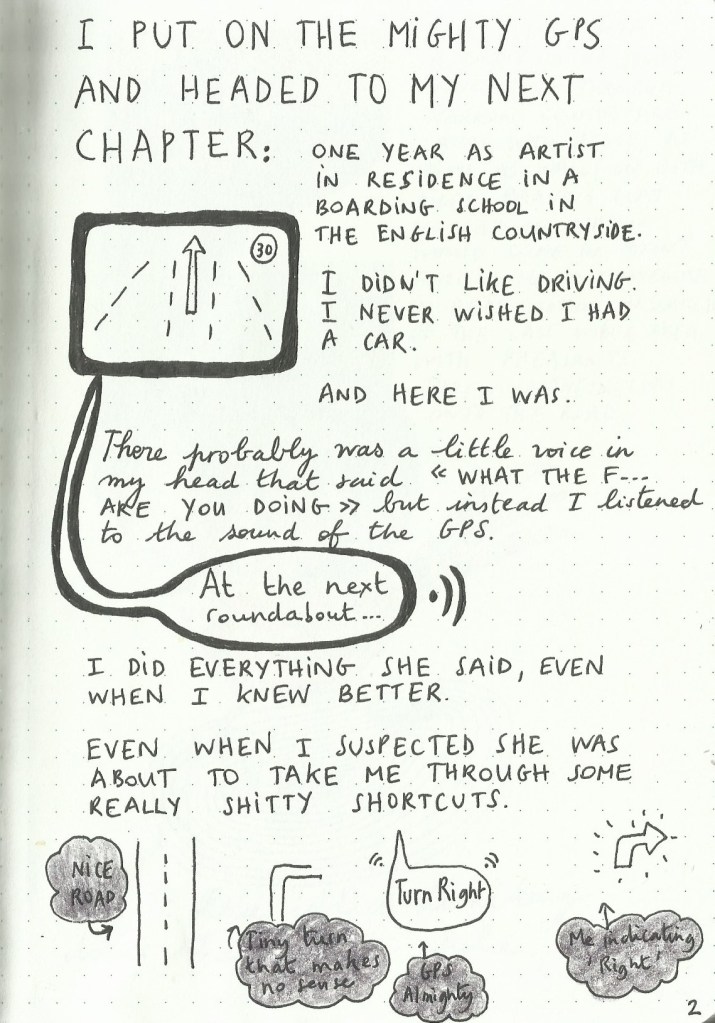 I PUT ON THE MIGHTY GPS
AND HEADED TO MY NEXT
CHAPTER:
ONE YEAR AS ARTIST
IN RESIDENCE IN A
BOARDING SCHOOL IN
THE ENGLISH COUNTRYSIDE.
30
I DIDN'T LIKE DRIVING.
I NEVER WISHED I HAD
A CAR.
AND HERE I WAS.
There probably was a little voice in
my head that said « WHAT THE F---
ARE YOU DOING » but instead I listened
to the sound of the GPS.
At the next
roundabout...
I DID EVERYTHING SHE SAID, EVEN
WHEN I KNEW BETTER.
EVEN WHEN I SUSPECTED SHE WAS
ABOUT TO TAKE ME THROUGH SOME
REALLY SHITTY SHORTCUTS.
NICE
ROAD
Tiny turn
that makes
no sense
Turn Right
GPS
Almighty
Me indicating
'Right'
2